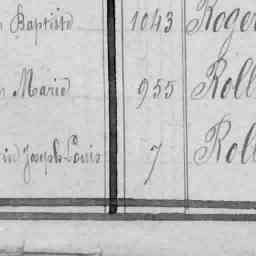 Baptiste 1043 Roger
Marie 955 Roll
Joseph Louis 7 Roll